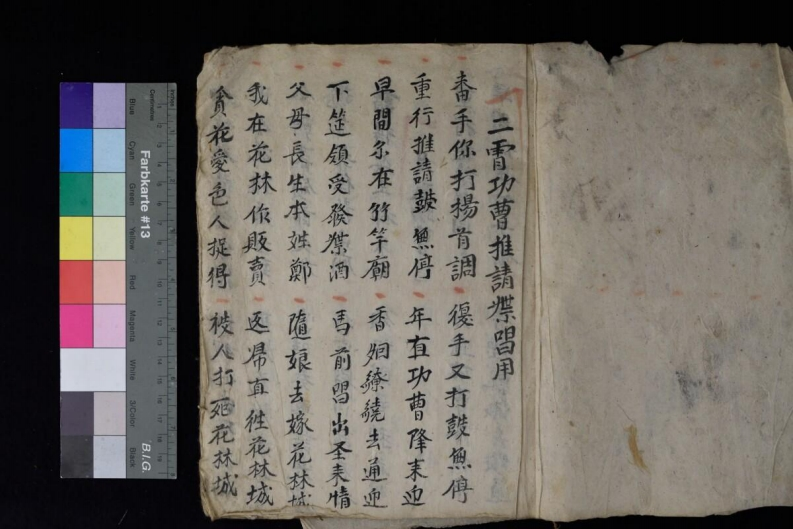 二功曹推請唱用
番手你打揚首調 復手又打鼓無停
重行推請鼓無停 年直功曹降来迎
早間尓在竹竿廟 香烟繚繞去通迎
下筵領受發酒 馬前唱出圣来情
父母長生本姓鄭 隨娘去嫁花林城
我在花林作販賣 返歸直往花林城
貪花愛色人捉得 被人打死花林城
Farbkarte #13
B.I.G.
Blue Cyan Green Yellow Red Magenta White 3/Color Black